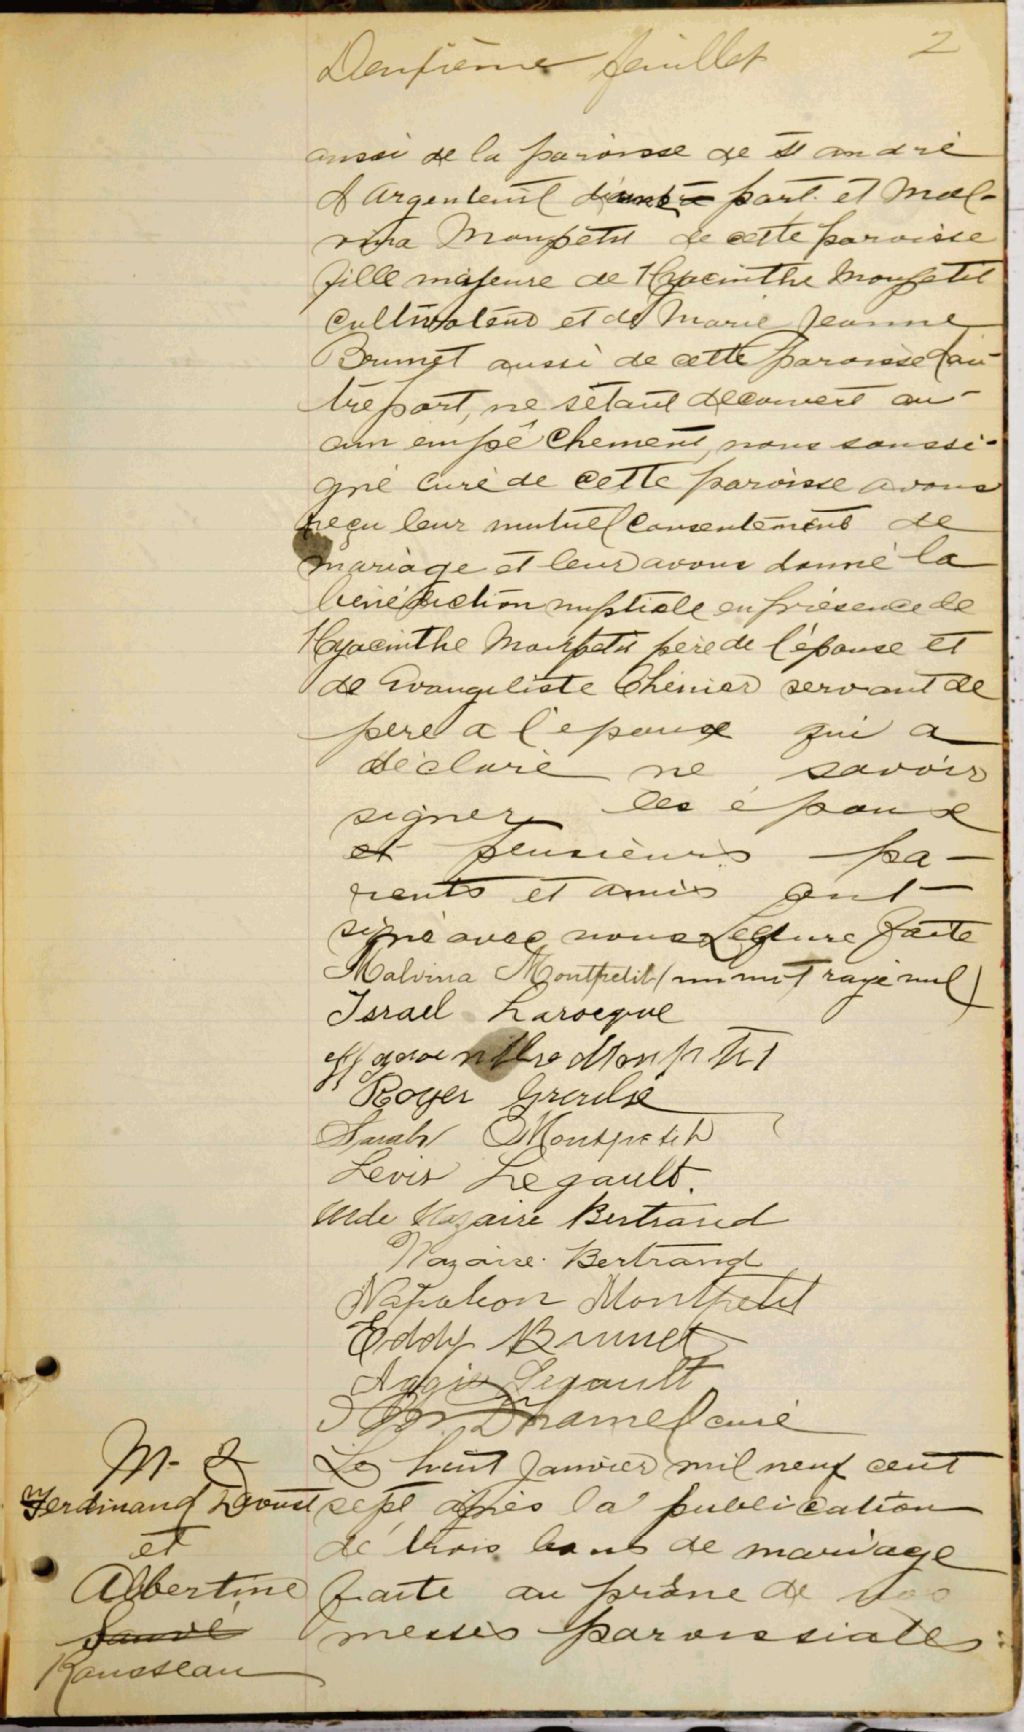 Deuxième feuillet 2
aussi de la paroisse de St andré
d'Argenteuil d'une part et Mal-
vina Monpetit de cette paroisse
fille majeure de Hyacinthe Monpetit
cultivateur et de Marie Jeanne
Brunet aussi de cette paroisse d'au-
tre part, ne s'étant decouvert au-
cun empêchement, nous soussi-
gné curé de cette paroisse avons
reçu leur mutuel consentement de
mariage et leur avons donné la
bénédiction nuptiale en présence de
Hyacinthe Monpetit père de l'épouse et
de Evangeliste Chénier servant de
père a l'epoux qui a
déclaré ne savoir
signer, les époux
et plusieurs pa-
rents et amis ont
signé avec nous Lecture faite
Malvina Montpetit (un mot rayé nul)
Israel Larocque
Hyacinthe Monptit
Roger Groulx
Sarah Montpetit
Levis Legault.
Mde Nazaire Bertrand
Nazaire Bertrand
Napoleon Montpetit
Eddy Brunet
Aggie Legault
Duhamel curé
M- 2
Ferdinand Daoust
et
Albertine
Sauvé
Rousseau
Le huit Janvier mil neuf cent
sept, après la publication
de trois bans de mariage
faite au prône de nos
messes paroissiales